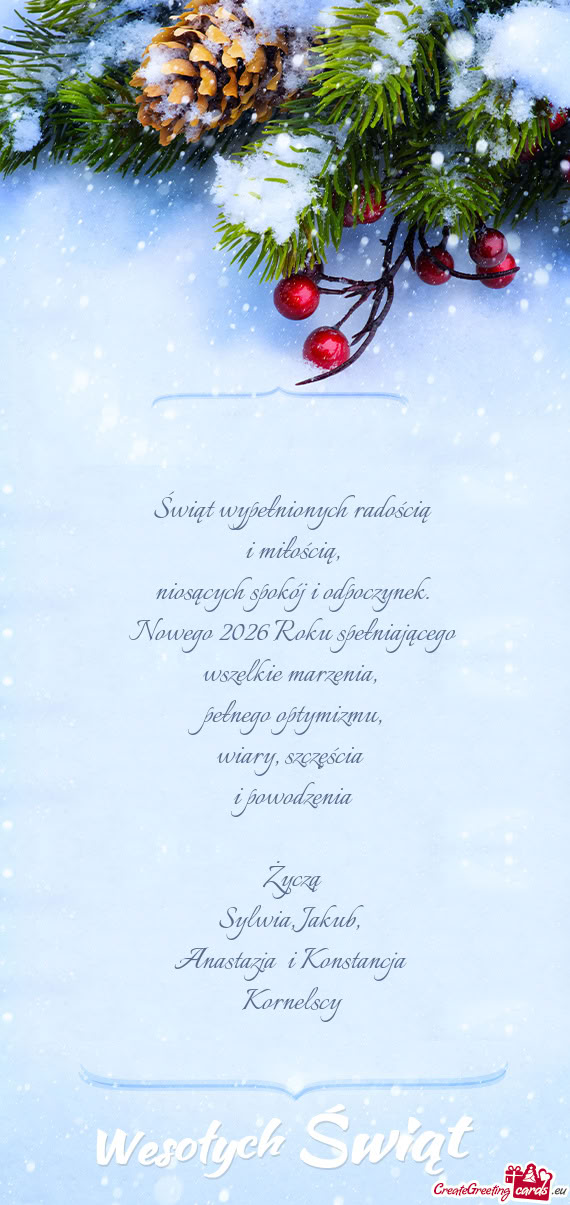 Świąt wypełnionych radością
i miłością,
niosących spokój i odpoczynek.
Nowego 2026 Roku spełniającego
wszelkie marzenia,
pełnego optymizmu,
wiary, szczęścia
i powodzenia
Życzą
Sylwia,Jakub,
Anastazja i Konstancja
Kornelscy
Wesołych Świąt
CreateGreeting cards .eu